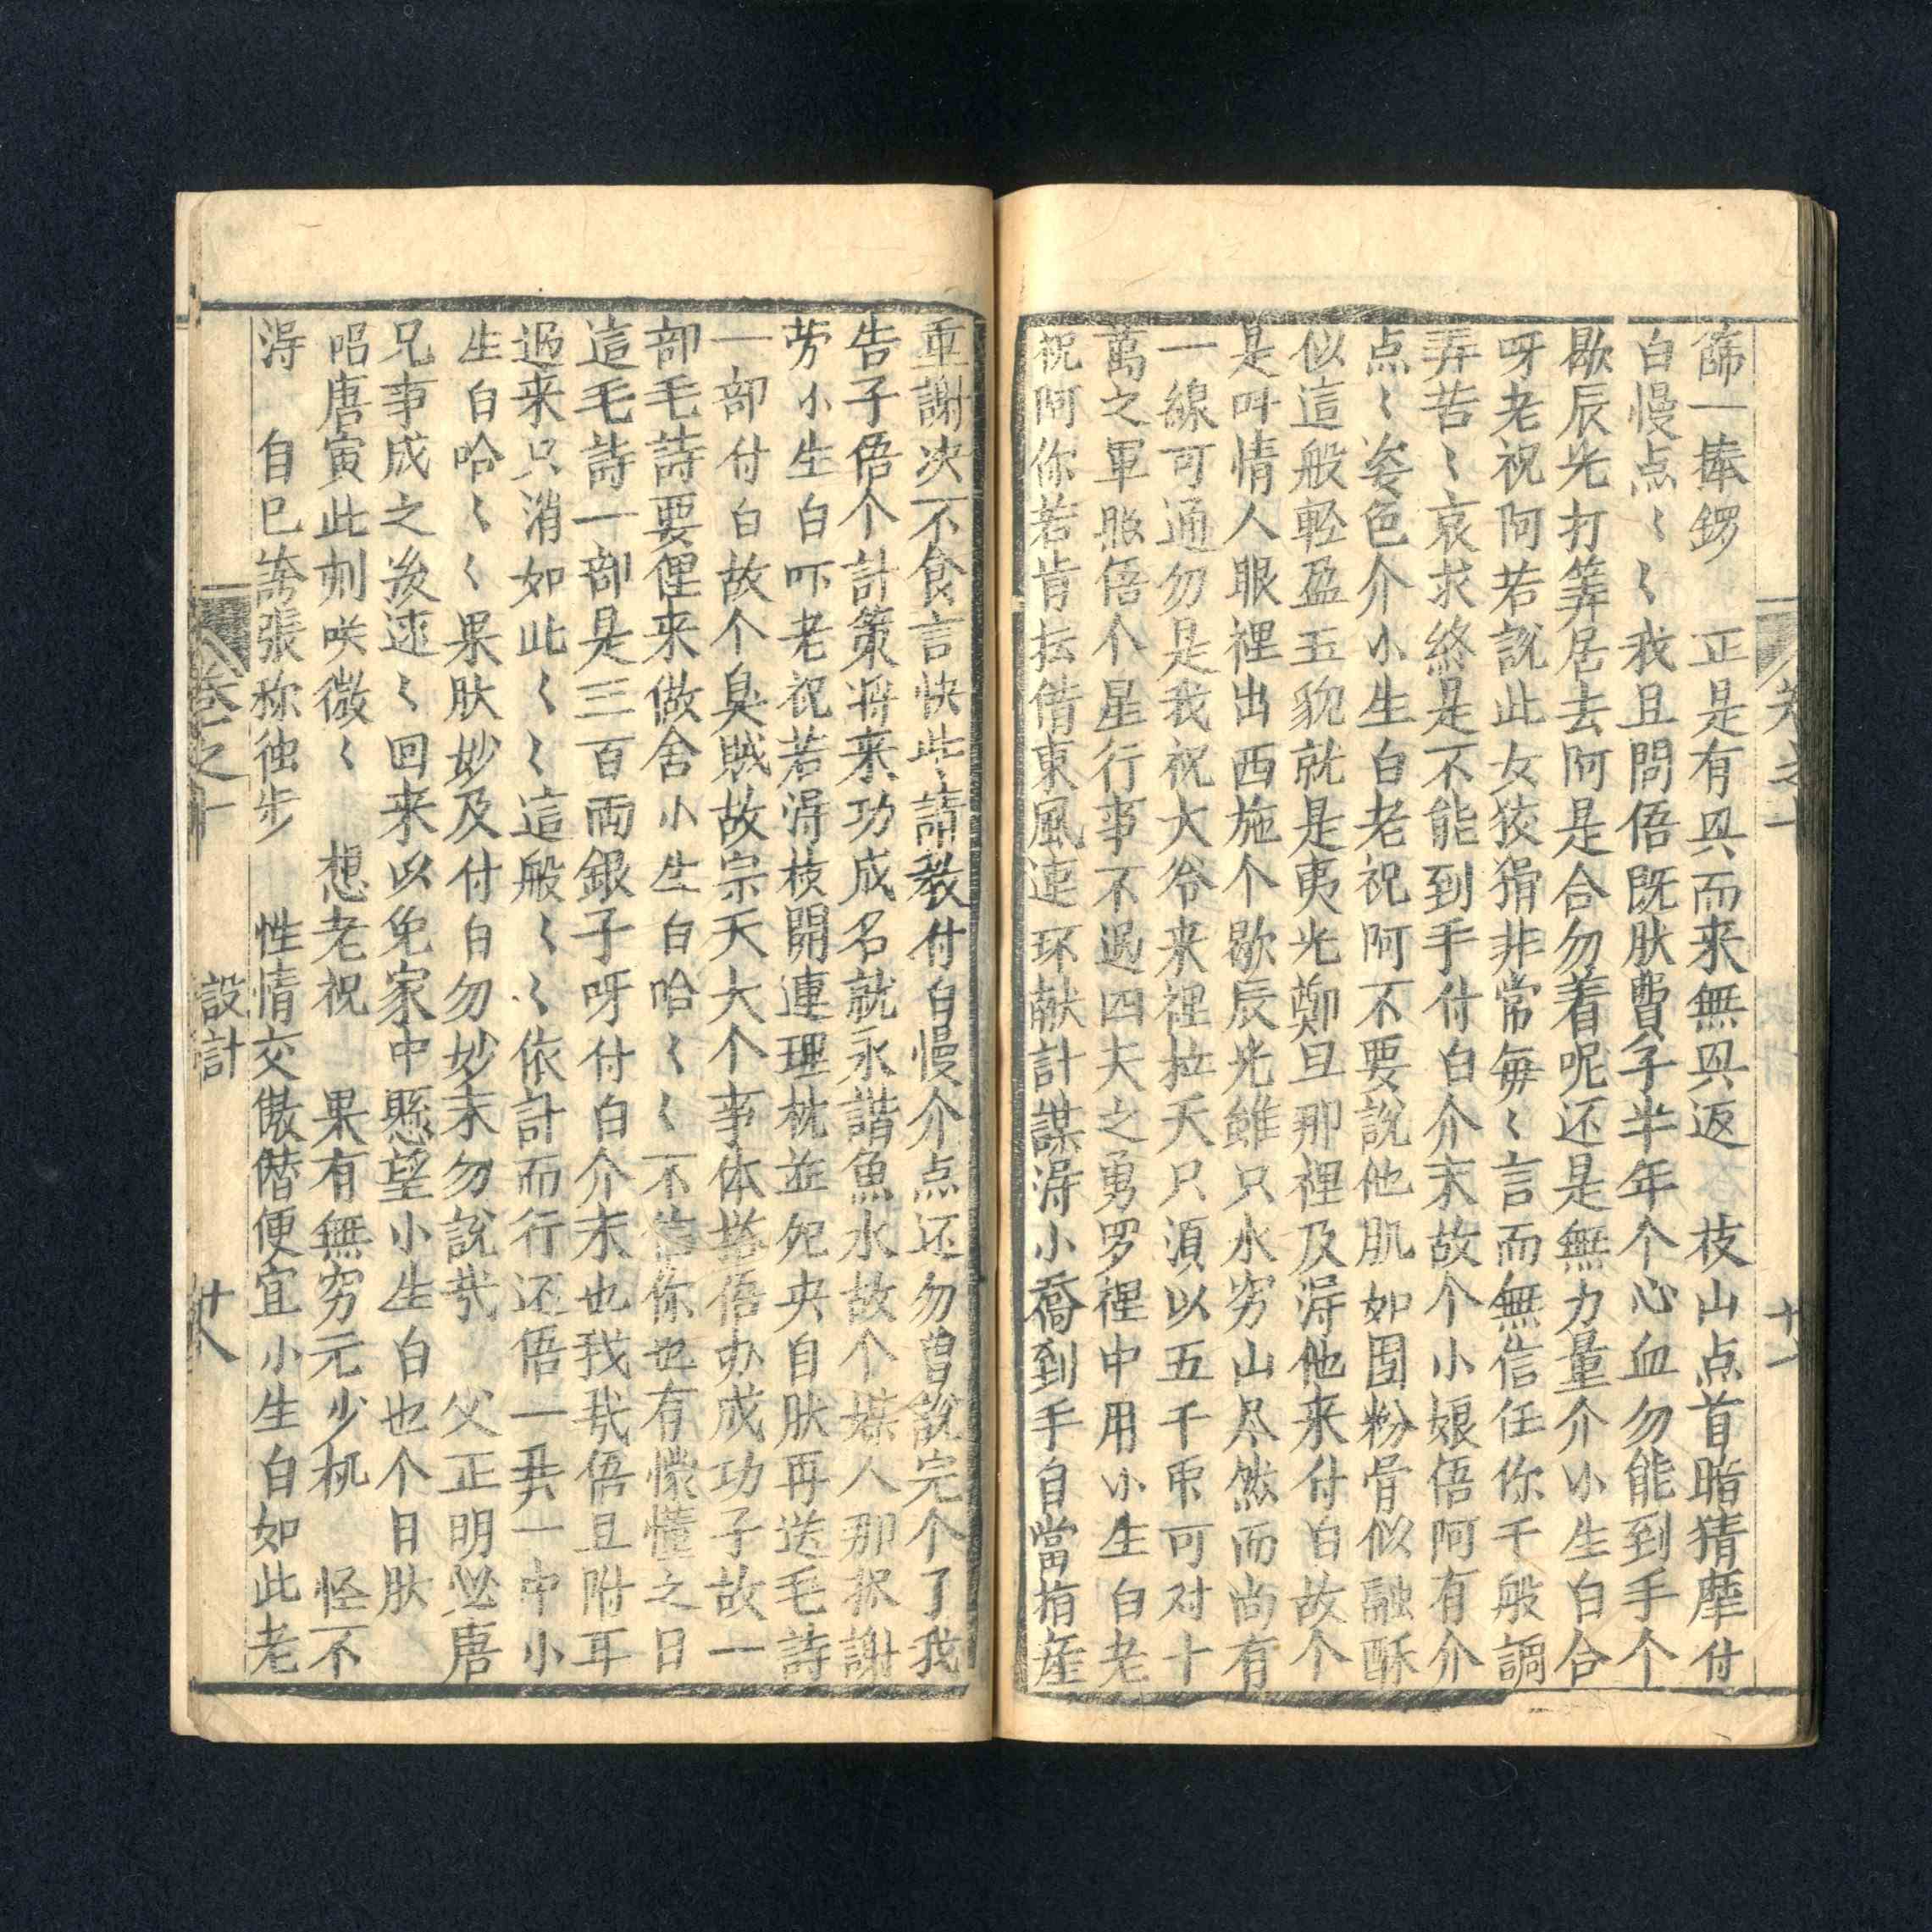 卷之十
十一
篩一棒鑼　正是有興而来無興返　枝山点首暗猜摩付
白慢点〻〻我且問俉既肰費子半年个心血勿能到手个
歇辰光打筭居去阿是合勿着呢还是無力量介小生白合
呀老祝阿若說此女狡猾非常每〻言而無信任你千般謫
弄苦〻哀求終是不能到手付白介末故个小娘俉阿有介
点〻姿色介小生白老祝阿不要說他肌如圑粉骨似融酥
似這般輕盈玉貌就是夷光鄭旦那裡及淂他来付白故个
是叫情人眼裡出西施个歇辰光雖只水穷山尽然而尚有
一線可通勿是我祝大爷来裡拉天只湏以五千兵可对十
萬之軍照俉个星行事不過四夫之勇罗裡中用小生白老
祝阿你若肯抎借東風連环献計謀淂小喬到手自當揹産
重謝决不食言快此請教付白慢介点还勿曾說完个了我
告子俉个計策将来功成名就永諧魚水故个媒人那报謝
劳小生白吓老祝若淂枝開連理枕並夗央自肰再送毛詩
一部付白故个臭賊故宗天大个事体搭俉办成功子故一
部毛詩要俚来做舍小生白哈〻〻不信你也有懞懂之日
這毛詩一部是三百両銀子呀付白介末也我哉俉且附耳
過来只消如此〻〻這般〻〻依計而行还俉一㪯一中小
生白哈〻〻果肰妙及付白勿妙末勿說哉　父正明必唐
兄事成之後速〻回来以免家中懸望小生白也个自肰
唱唐寅此刻咲微〻　想老祝　果有無穷元少机　怪不
淂　自已誇張称独步　性情交傲僣便宜小生白如此老
卷之十
設計
十八